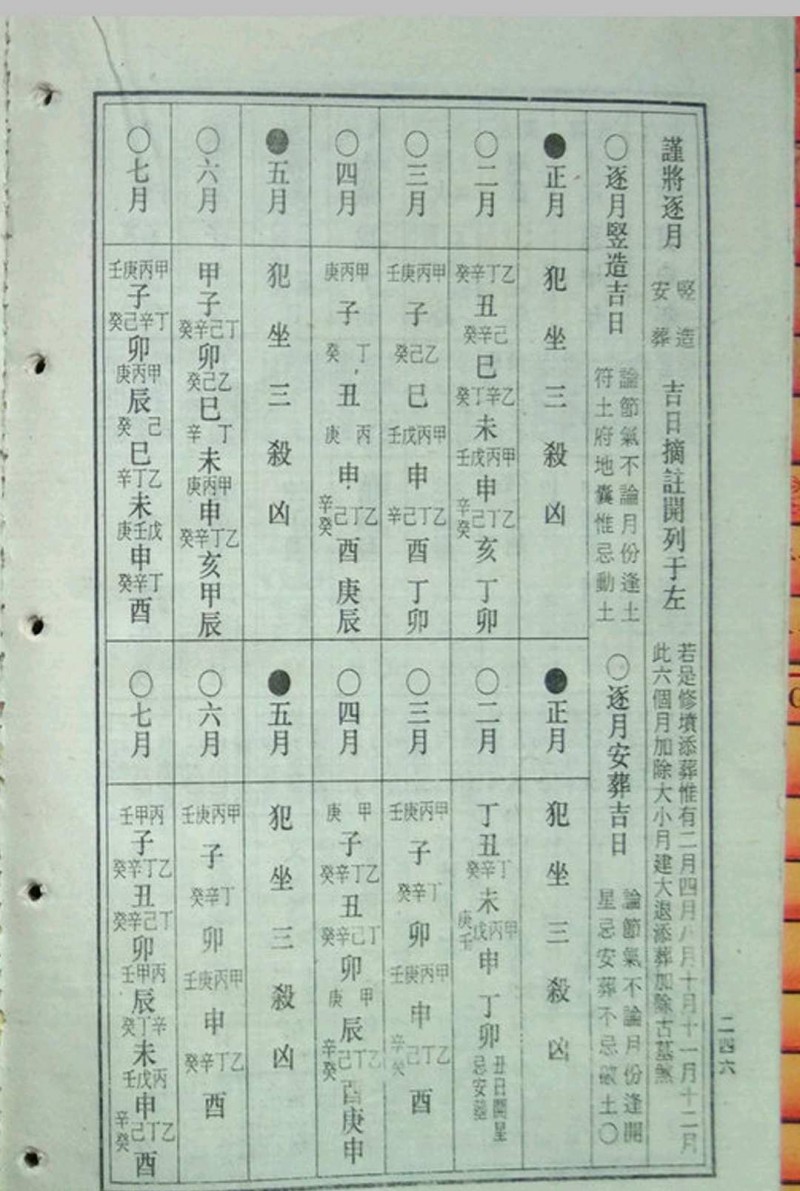 謹將逐月 竪造安葬 吉日摘註開列于左 若是修墳添葬惟有二月四月八月十月十一月十二月此六個月加除大小月建大退添葬加除古墓煞
〇逐月竪造吉日 論節氣不論月份逢土符土府地囊惟忌動土
〇逐月安葬吉日 論節氣不論月份逢開星忌安葬不忌破土〇
●正月 犯坐三殺凶
〇二月 乙丁辛癸丑 己辛癸巳 乙辛丁癸未 甲丙戊壬申 乙丁己辛癸亥 丁卯
〇三月 甲丙庚壬子 乙己癸巳 甲丙戊壬申 乙丁己辛酉 丁卯
〇四月 甲丙庚子 丁癸丑 丙庚申 乙丁己辛癸酉 庚辰
●五月 犯坐三殺凶
〇六月 甲子 丁己辛癸卯 乙己癸巳 丁辛未 甲丙庚申 乙丁辛癸亥 甲辰
〇七月 甲丙庚壬子 丁辛己癸卯 甲丙庚辰 己癸巳 乙丁辛未 戊壬庚申 丁辛癸酉
●正月 犯坐三殺凶
〇二月 丁丑 丁辛癸未 甲丙戊庚壬申 丁卯 丑日開星忌安葬
〇三月 甲丙庚壬子 丁辛癸卯 甲丙庚壬申 乙丁己辛癸酉
〇四月 甲庚子 乙丁辛癸丑 丁己辛癸卯 甲庚辰 乙丁己辛癸酉 庚申
●五月 犯坐三殺凶
〇六月 甲丙庚壬子 丁辛癸卯 甲丙庚壬申 乙丁辛癸酉
〇七月 丙甲壬子 乙丁辛癸丑 丁己辛癸卯 丙甲壬辰 辛丁癸未 丙戊壬申 乙丁己辛癸酉
二四六